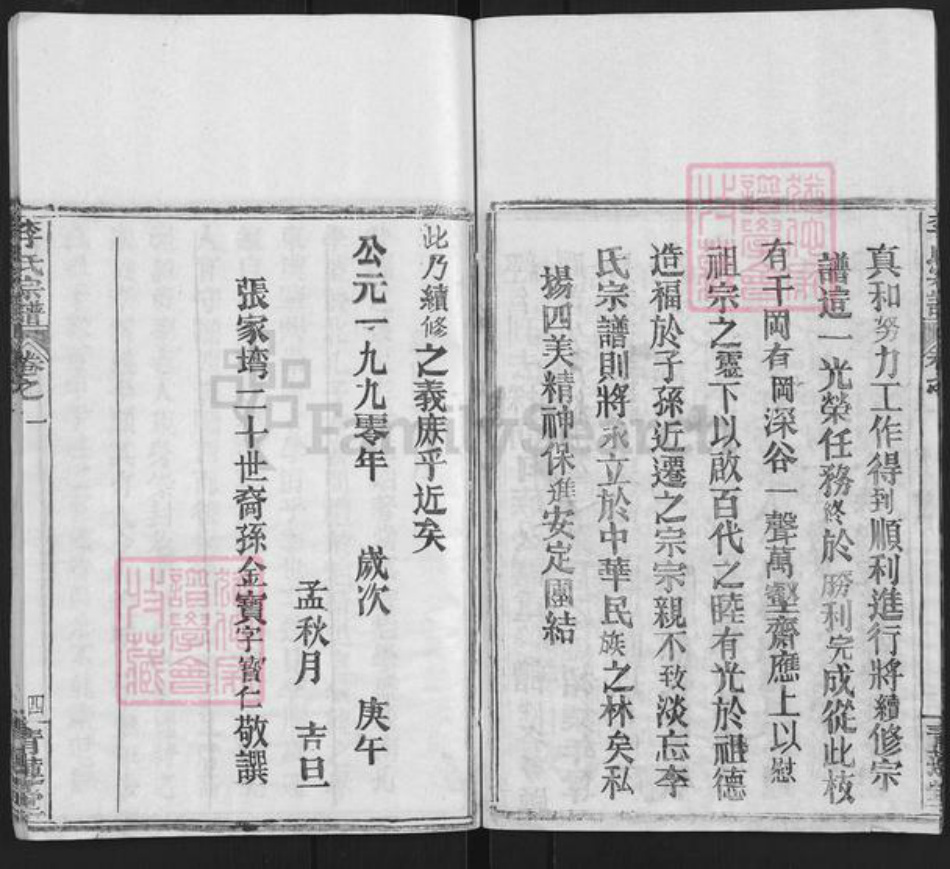 真和努力工作得到順利進行將續修宗
譜這一光榮任務終於勝利完成從此枝
有千岡有岡深谷一聲萬壑齋應上以慰
祖宗之靈下以啟百代之睦有光於祖德
造福於子孫近遷之宗宗親不致淡忘李
氏宗譜則將永立於中華民族之林矣私
揚四美精神保進安定團結
此乃續修之義庶乎近矣
公元一九九零年 歲次 庚午
孟秋月 吉旦
張家塆二十世裔孫金寶字寶仁敬譔
李氏宗譜 卷之一
四
FamilySearch